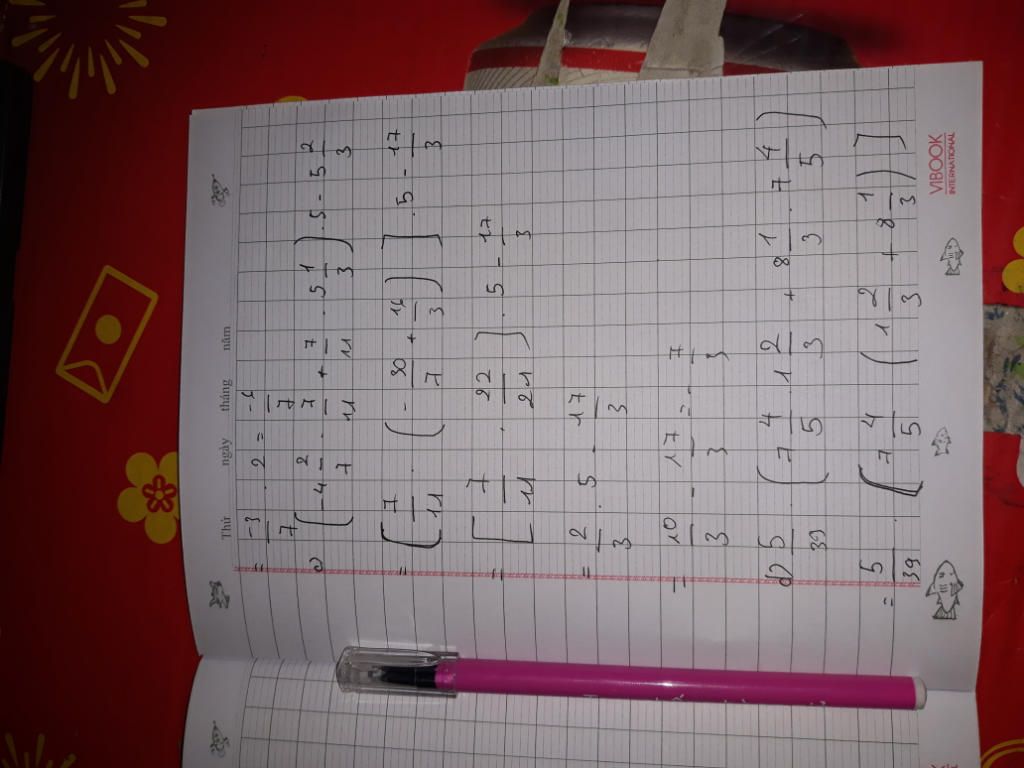 Thứ ngày tháng năm
= -3/7 . 2 = -6/7
c) (-4 2/7 . 7/11 + 7/11 . 5 1/3) . 5 - 5 2/3
= [7/11 . (- 30/7 + 16/3)] . 5 - 17/3
= [7/11 . 22/21] . 5 - 17/3
= 2/3 . 5 - 17/3
= 10/3 - 17/3 = - 7/3
d) 5/39 . (7 4/5 . 1 2/3 + 8 1/3 . 7 4/5)
= 5/39 . [7 4/5 (1 2/3 + 8 1/3)]
VIBOOK
INTERNATIONAL